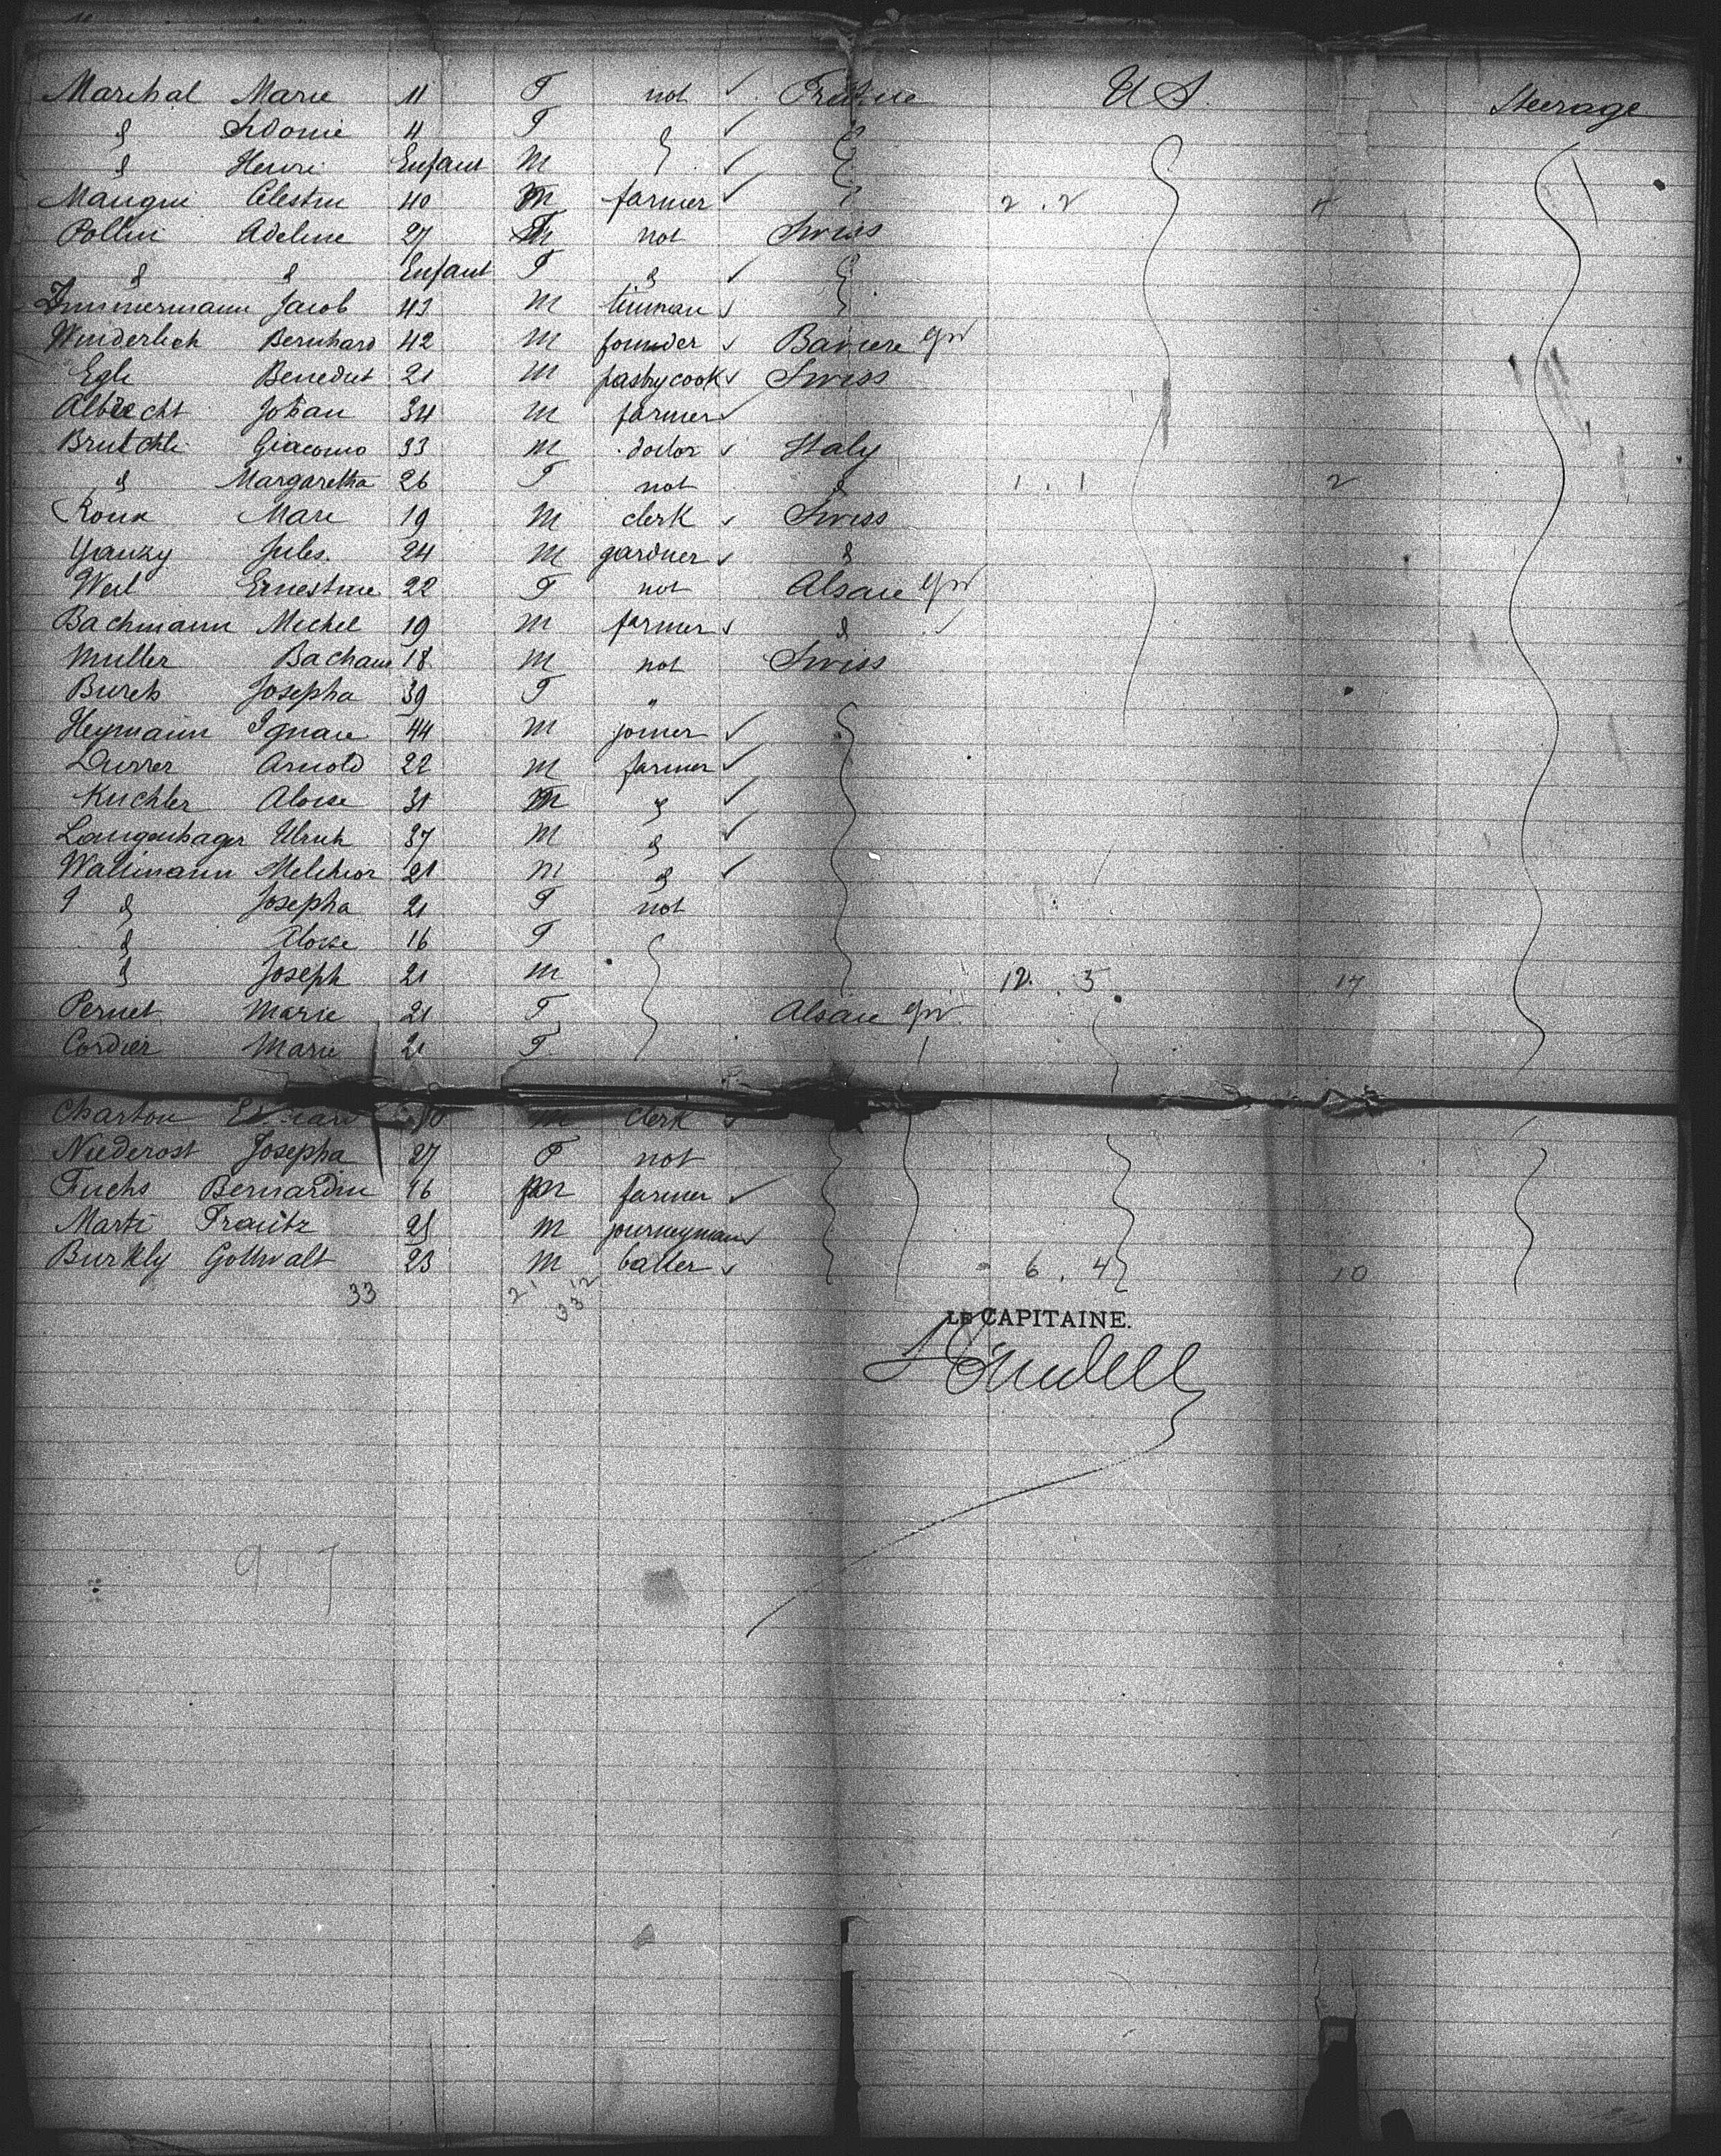 Marchal Marie 11 F not ✓ France U S. Steerage
" Sidonie 4 F " ✓ "
" Henri Enfant M ✓
Maugin Celestin 40 M farmer ✓ 2 . 2 4
Pollin Adeline 27 F not Swiss
" " Enfant F " ✓
Zimmermann Jacob 43 M tinman ✓
Winderlich Bernhard 42 M founder ✓ Baviere Gr
Egli Benedict 21 M pastrycook ✓ Swiss
Albrecht Johan 34 M farmer ✓
Brutchli Giacomo 33 M doctor ✓ Italy
" Margaretha 26 F not " 1 . 1 2
Roux Marc 19 M clerk ✓ Swiss
Yauzy Jules 24 M gardner ✓ "
Weil Ernestine 22 F not Alsace Gr
Bachmann Michel 19 M farmer ✓ " ✓
Muller 18 M not Swiss
Burch Josepha 39 F "
Heymann Ignace 44 M joiner ✓
Durrer Arnold 22 M farmer ✓
Kuchler Aloise 31 M " ✓
Langenhager Ulrich 37 M " ✓
Wallimann Melchior 21 M " ✓
" Josepha 21 F not
" Aloise 16 F
" Joseph 21 M 12 . 5 17
Pernet Marie 21 F Alsace Gr
Cordier Marie 21 F
Charton M clerk ✓
Niederost Josepha 27 F not
Fuchs Bernardin 16 M farmer ✓
Marti Frantz 25 M journeyman ✓
Burkly Gottwalt 23 M ✓ 6 . 4 10
33 21 12 33
LE CAPITAINE.